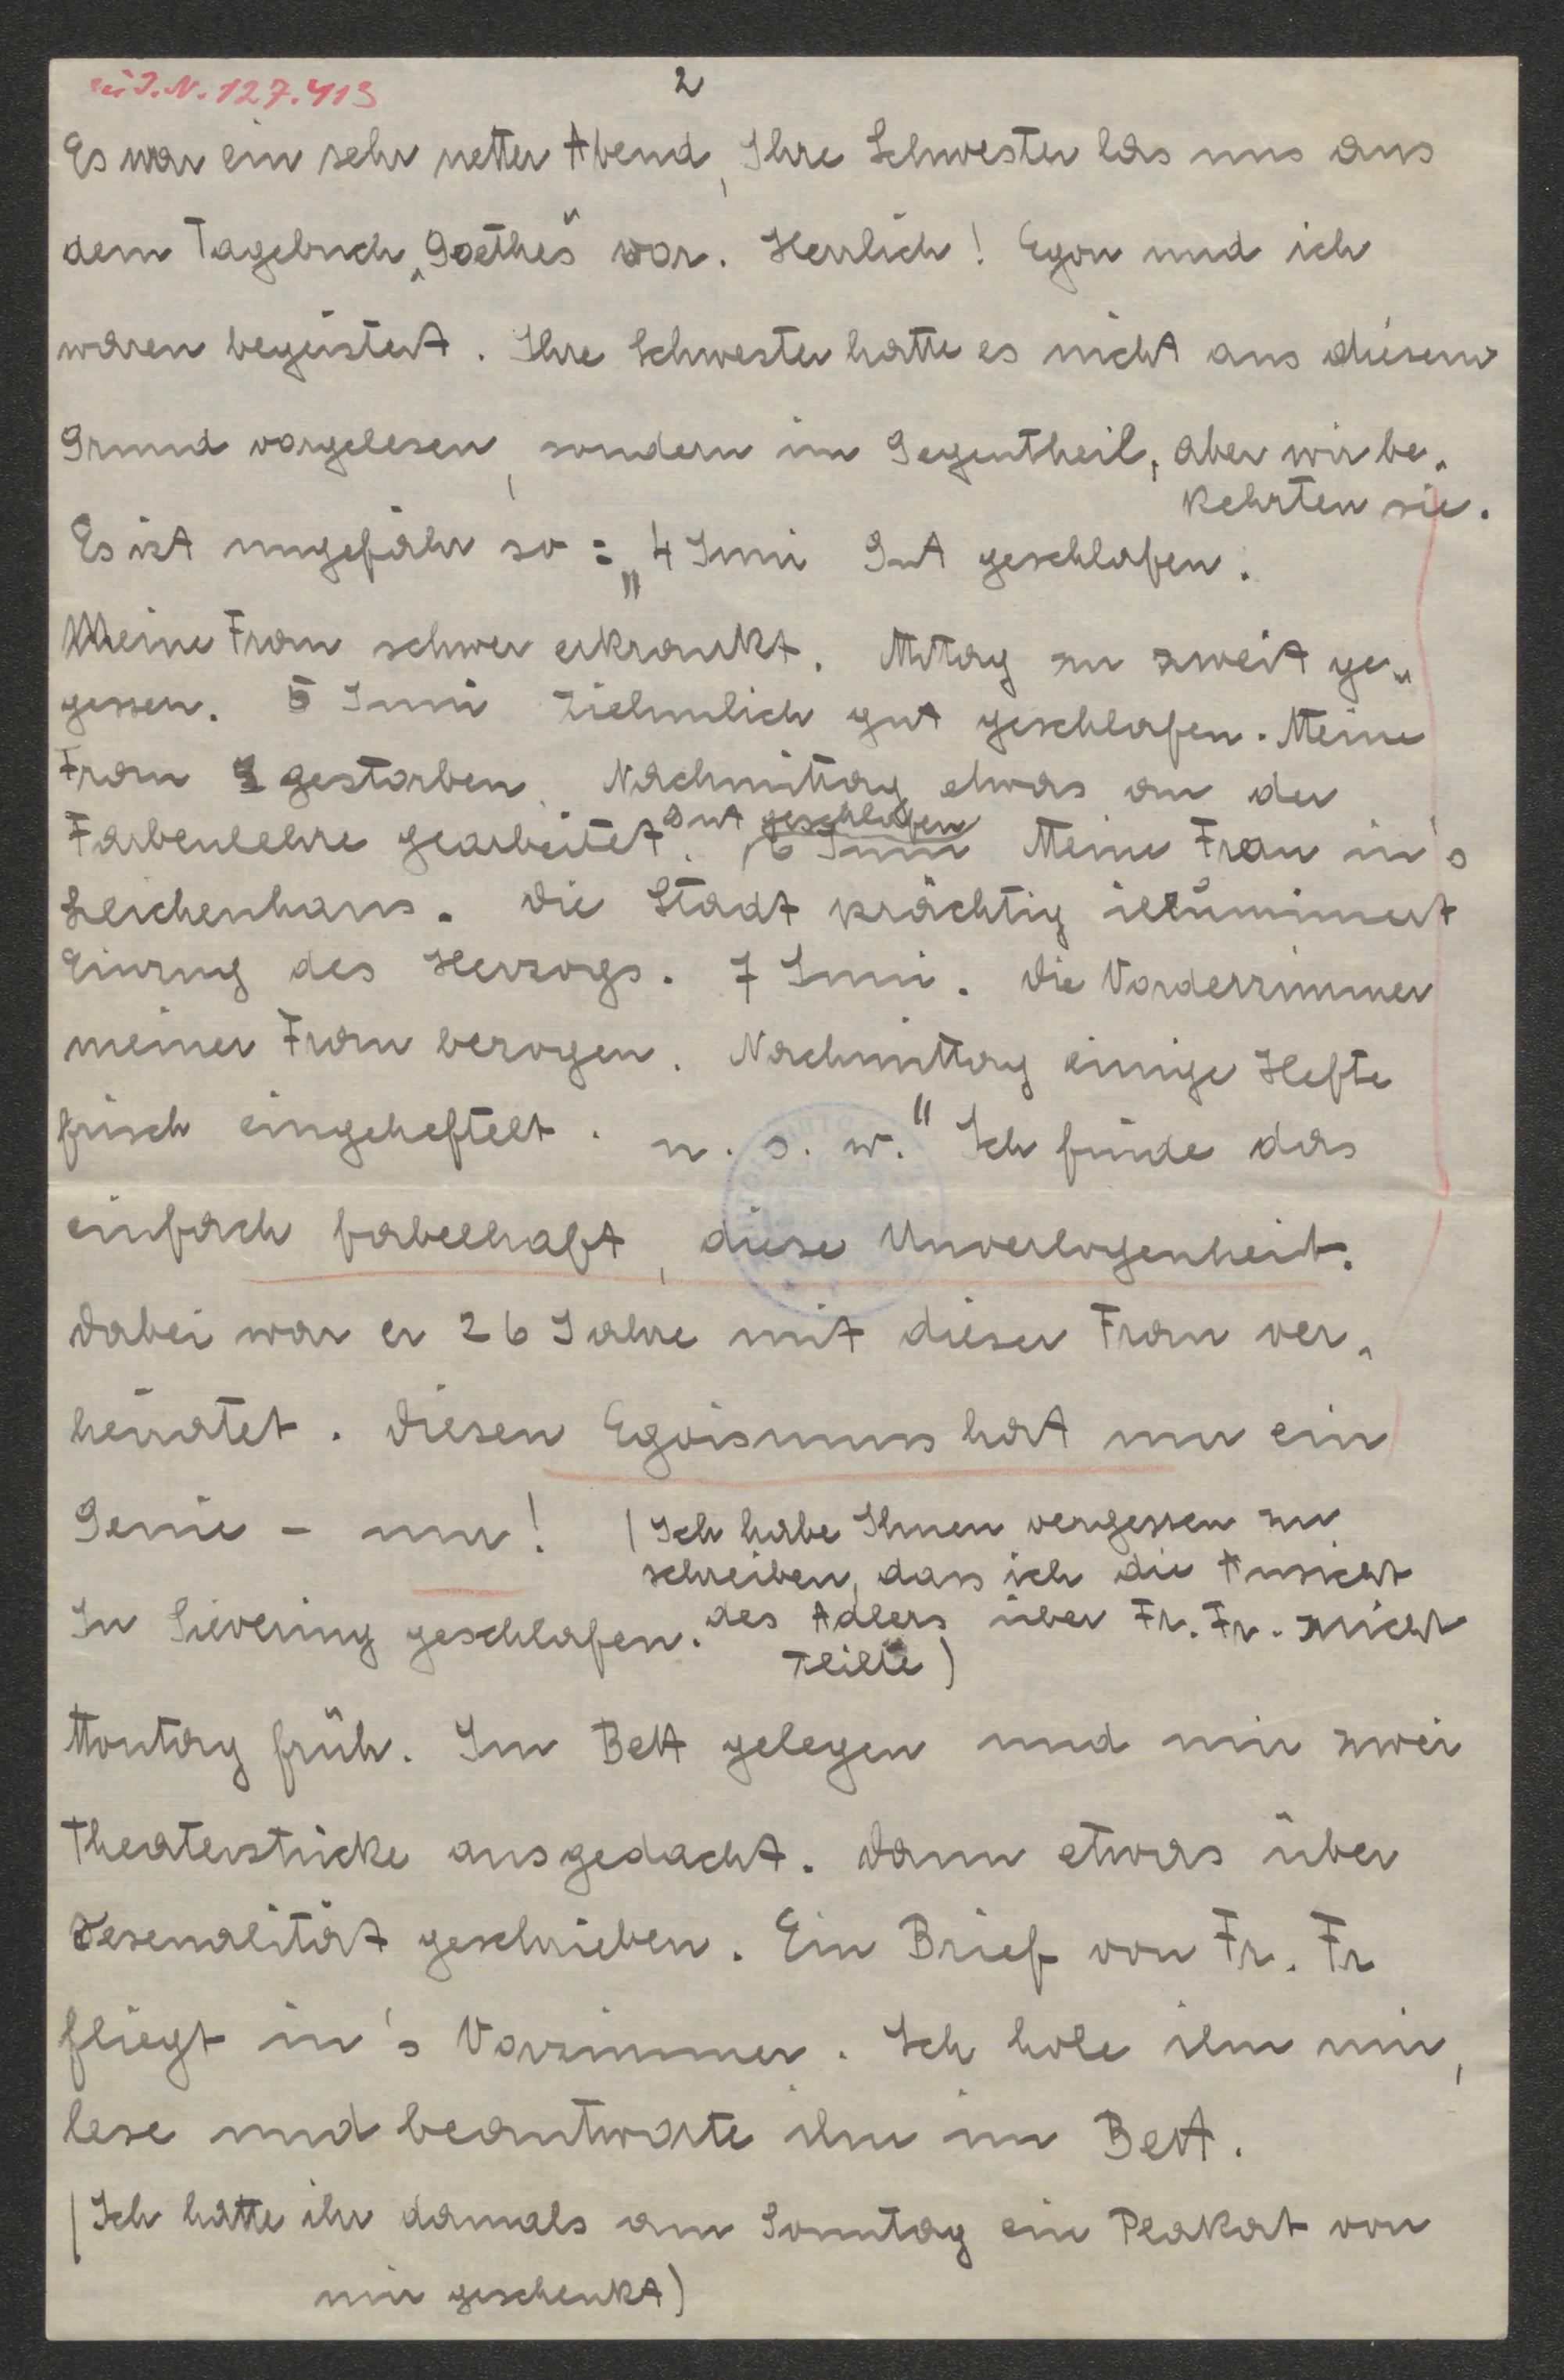 zu J.N. 127.413
2
Es war ein sehr netter Abend, Ihre Schwester las uns aus
dem Tagebuch „Goethes“ vor. Herrlich! Egon und ich
waren begeistert. Ihre Schwester hatte es nicht aus diesem
Grund vorgelesen, sondern im Gegentheil, aber wir be-
kehrten sie.
Es ist ungefähr so: „4 Juni Gut geschlafen.
Meine Frau schwer erkrankt. Mittag zu zweit ge-
gessen. 5 Juni Ziehmlich gut geschlafen. Meine
Frau gestorben. Nachmittag etwas an der
Farbenlehre gearbeitet. 6 Juni Gut geschlafen Meine Frau in's
Leichenhaus. Die Stadt prächtig illuminiert
Einzug des Herzogs. 7 Juni. Die Vorderzimmer
meiner Frau bezogen. Nachmittag einige Hefte
frisch eingeheftelt. u. s. w.“ Ich finde das
einfach fabelhaft, diese Unverlogenheit.
Dabei war er 26 Jahre mit dieser Frau ver-
heiratet. Diesen Egoismus hat nur ein
Genie – nur! (Ich habe Ihnen vergessen zu
schreiben, dass ich die Ansicht
des Adlers über Fr. Fr. nicht
teilte)
In Sievering geschlafen.
Montag früh. Im Bett gelegen und mir zwei
Theaterstücke ausgedacht. Dann etwas über
geschrieben. Ein Brief von Fr. Fr
fliegt in's Vorzimmer. Ich hole ihn mir,
lese und beantworte ihn im Bett.
(Ich hatte ihr damals am Sonntag ein Plakat von
mir geschenkt)